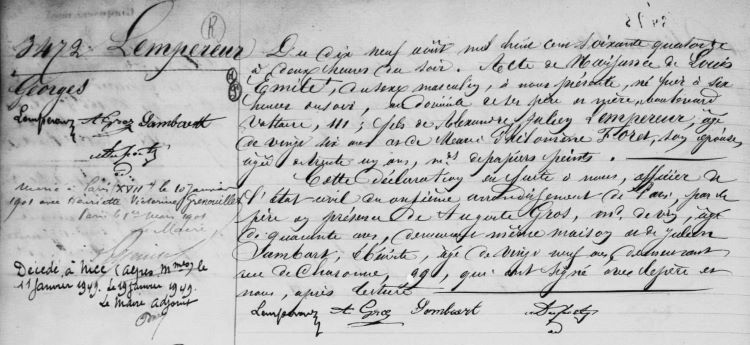 3472 Lempereur
Georges
Lempereur A Gros Lambert
Marié à Paris XVIIe le 10 janvier
1901 avec Henriette Victorine Grenouillet
Paris le 1er Mars 1901
Le Maire
Décédé à Nice (Alpes Mmes) le
11 Janvier 1949. Le 19 Janvier 1949.
Le Maire adjoint
Du dix neuf août mil huit cent soixante quatorze
à deux heures du soir. Acte de Naissance de Louis
Emile, du sexe masculin, à nous présenté, né hier à six
heures du soir, au domicile de ses père et mère, boulevard
Voltaire, 111; fils de Alexandre Julien Lempereur, âgé
de vingt six ans, et de Marie Victorine Floret, son épouse,
âgée de trente un ans, mds de papiers peints.
Cette déclaration en suite à nous, officier de
l'état civil du onzième arrondissement de Paris par le
père en présence de Auguste Gros, md. de vin, âgé
de quarante ans, demeurant même maison et de Julien
Lambert, âgé de vingt neuf ans, demeurant
rue de Charonne, 99, qui ont signé avec le père et
nous, après lecture
Lempereur A Gros Lambert